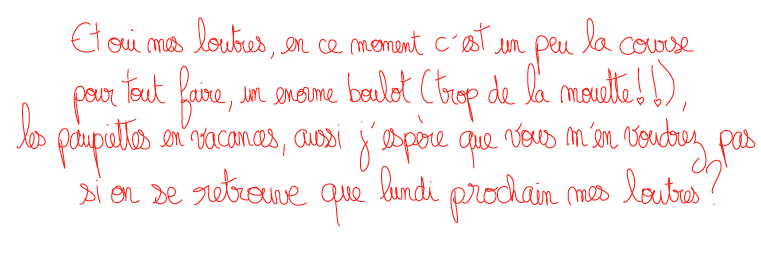 Et oui mes loutres, en ce moment c'est un peu la course
pour tout faire, un enorme boulot (trop de la mouette!!),
les paupiettes en vacances, aussi j'espère que vous m'en voudrez pas
si on se retrouve que lundi prochain mes loutres?